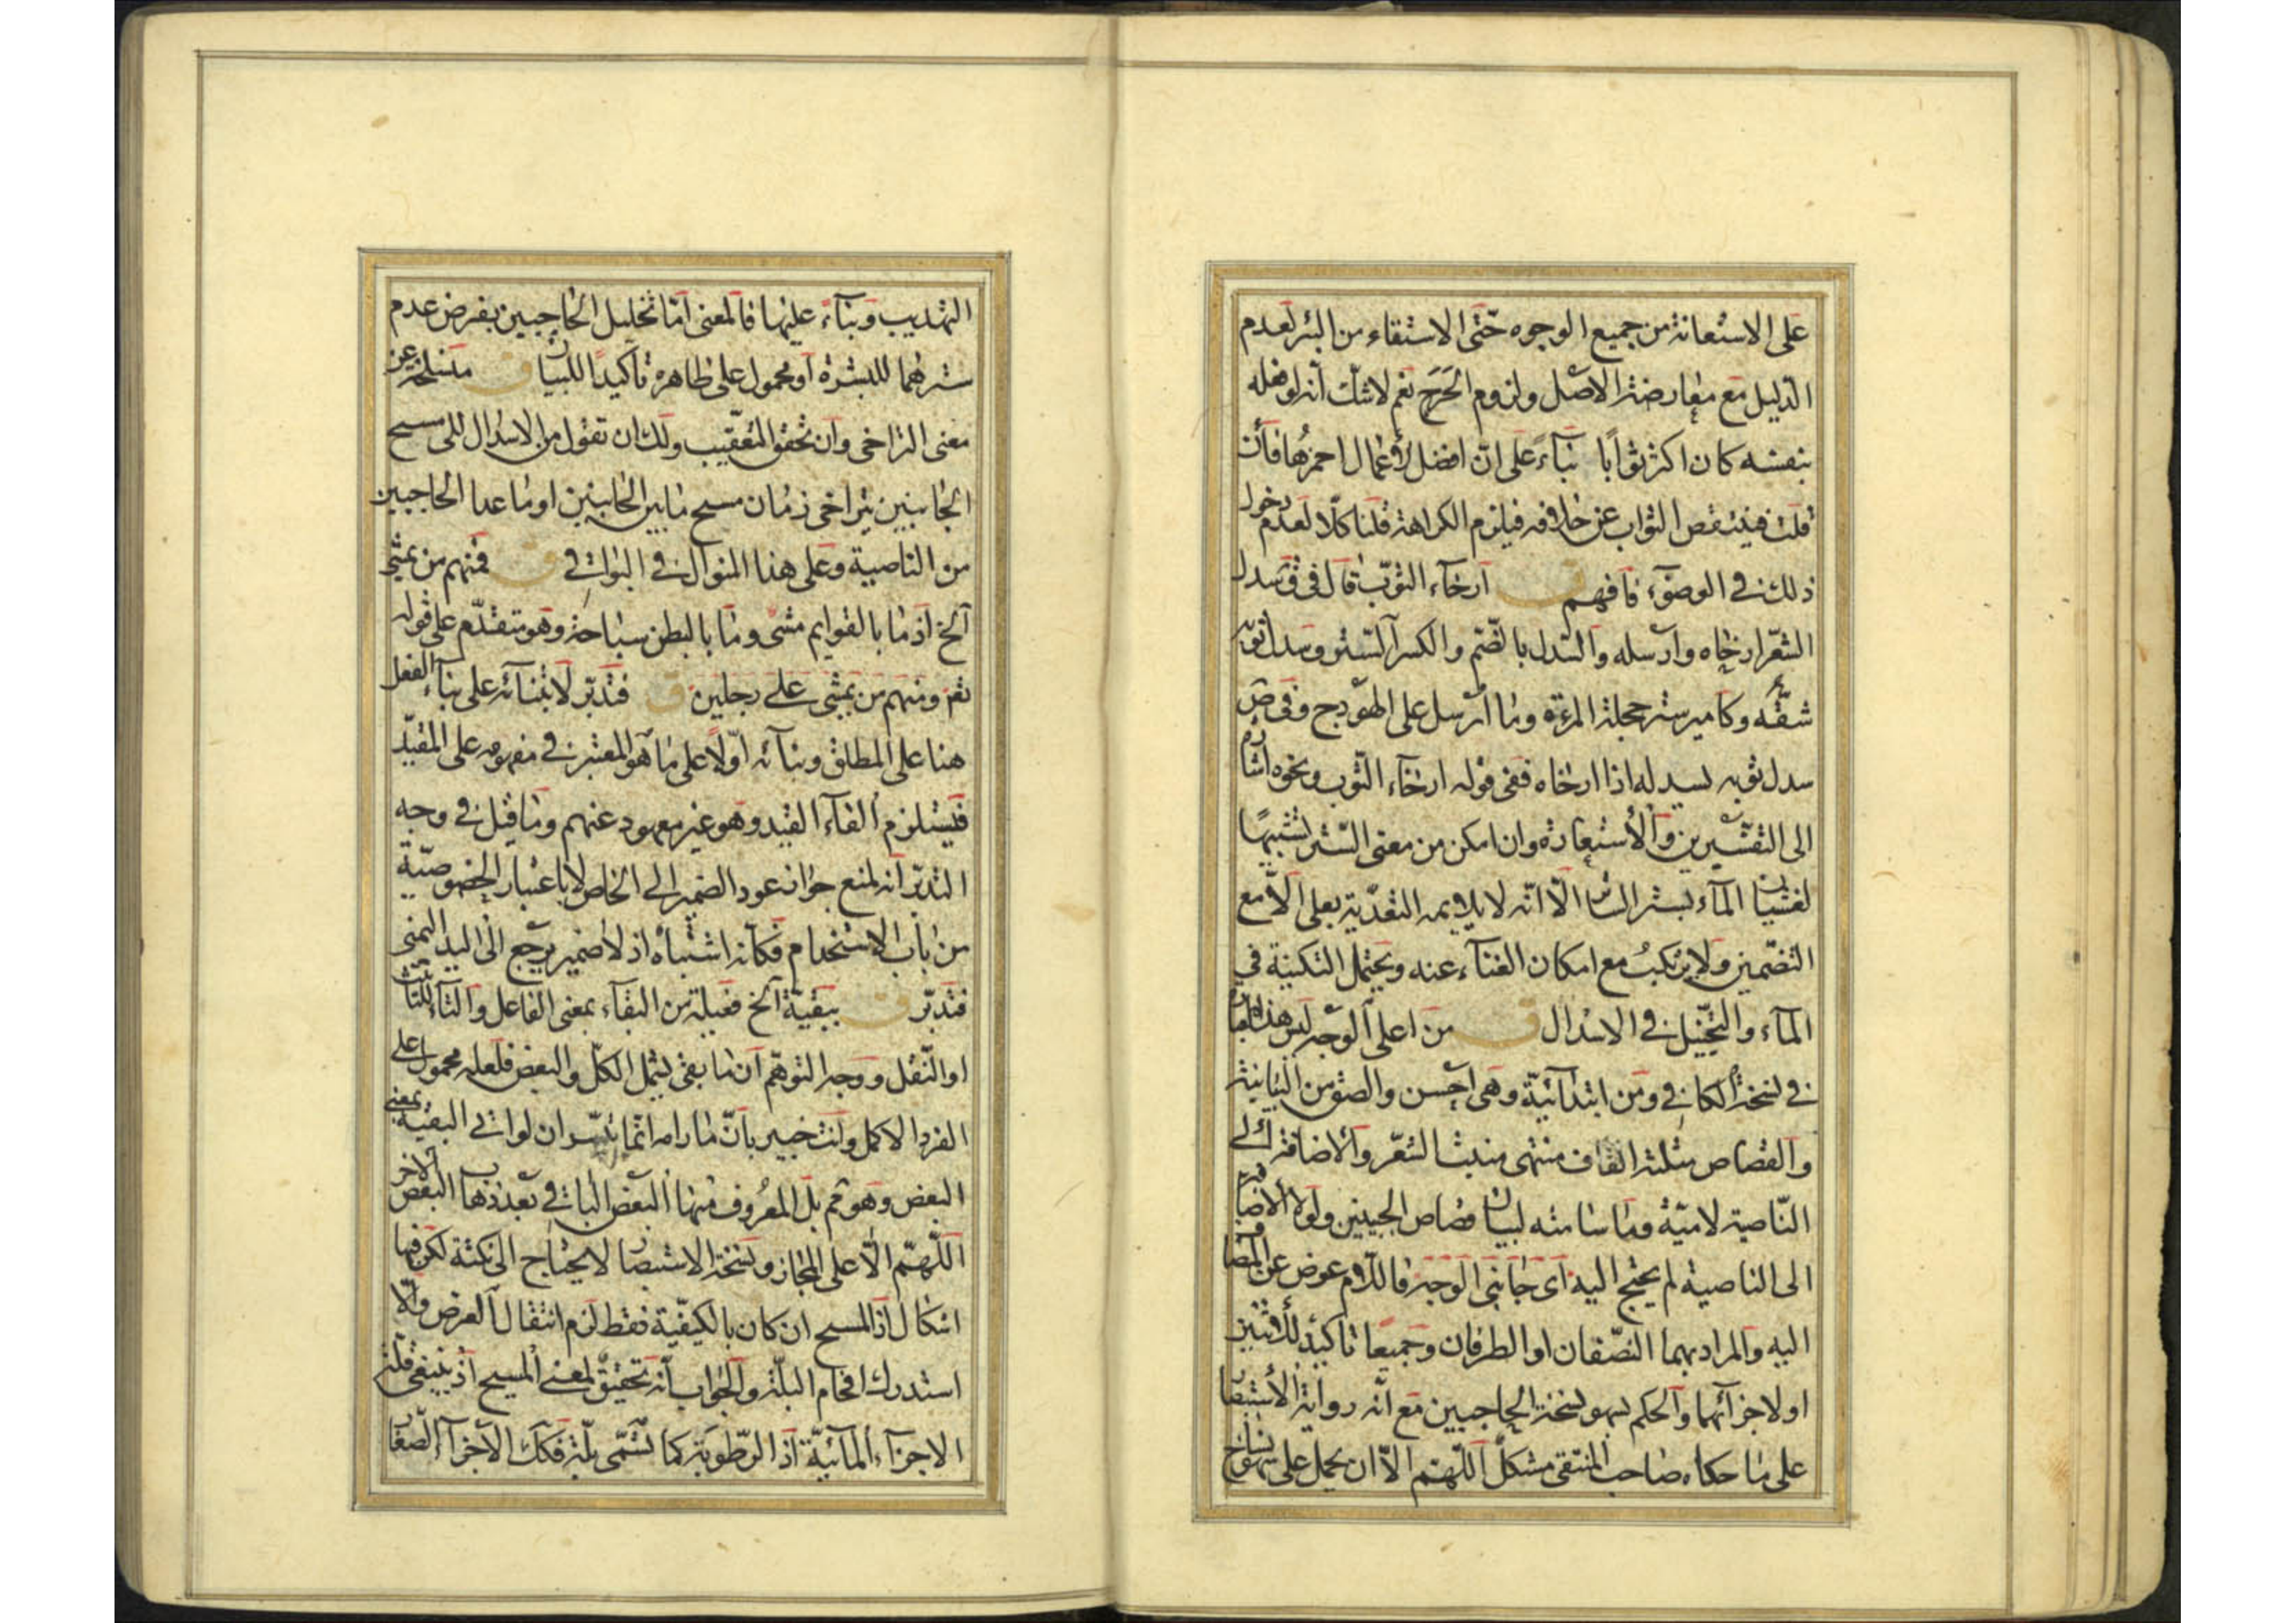 على الاستعانة من جميع الوجوه حتى الاستقاء من البئر لعدم
الدليل مع معارضته الاصل ولزوم الحرج نعم لا شك انه لو فعله
بنفسه كان اكثر ثوابا بناء على ان افضل الاعمال احمزها فان
قلت فينقص الثواب عن خلافه فيلزم الكراهة قلنا كلا لعدم دخول
ذلك في الوضوء فافهم ق ارخاء الثوب قال في ق سدل
الشعر ارخاه وارسله والسدل بالضم والكسر الستر وسدل ثوبه
شقه وكامير ستر حجلة المرءة وما ارسل على الهودج وفي ص
سدل ثوبه يسدله اذا ارخاه ففي قوله ارخاء الثوب ونحوه اشارة
الى التفسيرين والاستعارة وان امكن من معنى الستر تشبيها
لغشيان الماء بستر الساتر الا انه لا يلايمه التعدية بعلى الا مع
التضمين ولا يرتكب مع امكان الغناء عنه ويحتمل التكنية في
الماء والتخييل في الاسدال ق من اعلى الوجه ليس هذا
في نسخة الكافي ومن ابتدائية وهي احسن والصق من البيانية
والقصاص مثلثة القاف منتهى منبت الشعر والاضافة الى
الناصية لامية وما سامته لبيان قصاص الجبينين ولولا الاضافة
الى الناصية لم يحتج اليه اى جانبى الوجه فاللام عوض عن المضاف
اليه والمراد بهما النصفان او الطرفان وجميعا تاكيد للاثنين
او لاجزائهما والحكم بسهو نسخة الحاجبين مع انه رواية الاستبصار
على ما حكاه صاحب المنتقى مشكل اللهم الا ان يحمل على سهو نساخ
التهذيب وبناء عليها فالمعنى اما تخليل الحاجبين بفرض عدم
سترهما للبشرة او محمول على ظاهره تاكيدا للبيان ق منسلخ عن
معنى التراخى وان تحقق التعقيب ولك ان تقول من الاسدال للى مسح
الجانبين يتراخى زمان مسح ما بين الجانبين او ما عدا الحاجبين
من الناصية وعلى هذا المنوال في البواقي ق فمنهم من يمشى
الخ اذ ما بالقوايم مشى وما بالبطن سباحة وهو متقدم على قوله
ثم ومنهم من يمشى على رجلين ق فتدبر لابتنائه على بناء الفعل
هنا على المطلق وبنائه اولا على ما هو المعتبر في مفهومه على المقيد
فيستلزم الغاء القيد وهو غير معهود عنهم وما قيل في وجه
التدبر انه لمنع جواز عود الضمير الى الخاص لا باعتبار الخصوصية
من باب الاستخدام فكانه اشتباه اذ لا ضمير يرجع الى اليد اليمنى
فتدبر ق ببقية الخ فعيلة من البقاء بمعنى الفاعل والتاء للتانيث
او النقل ووجه التوهم ان ما بقى يشمل الكل والبعض فلعله محمول على
الفرد الاكمل وانت خبير بان ما رامه انما يتيسر ان لو اتى البقية بمعنى
البعض وهو ثم بل المعروف منها البعض الباقي بعد ذهاب البعض الاخر
اللهم الا على المجاز ونسخة الاستبصار لا يحتاج الى نكتة لكن فيها
اشكال اذ المسح ان كان بالكيفية فقط لزم انتقال العرض والا
استدرك اقحام البلة والجواب انه تحقيق لمعنى المسح اذ ينبغى قلة
الاجزاء المائية اذ الرطوبة كما تسمى بلة فكك الاجزاء الصغار